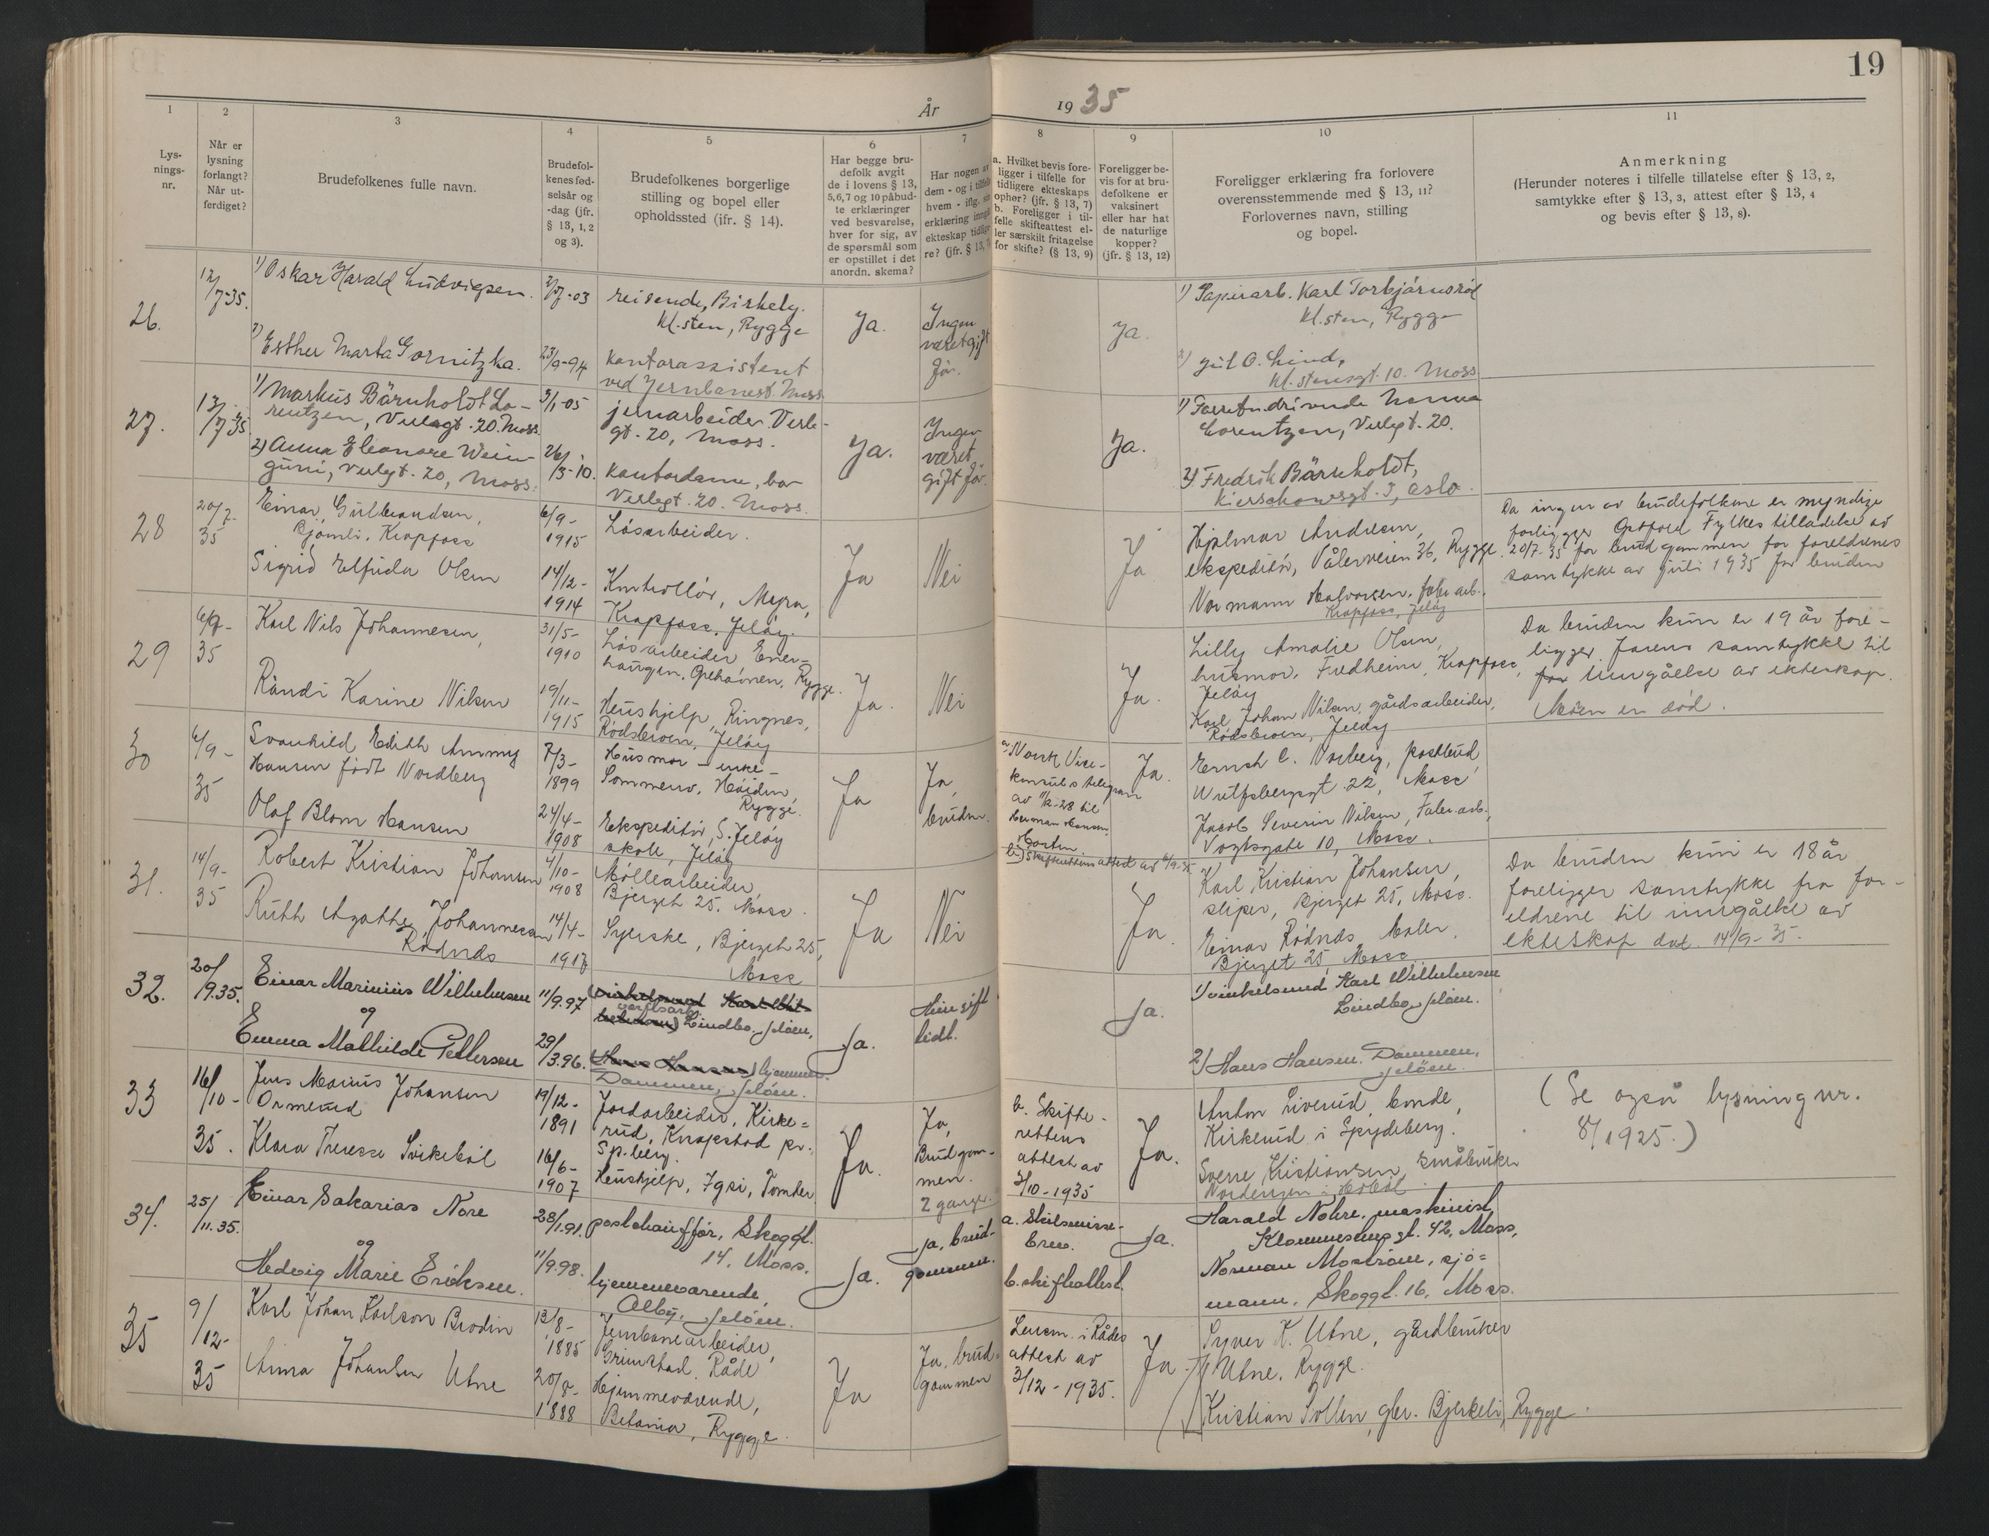 19
År
19 35
1
2
3
4
5
6
7
8
9
10
11
Lys-
nings-
nr.
Når er
lysning
forlangt?
Når ut-
ferdiget?
Brudefolkenes fulle navn.
Brudefol-
kenes fød-
selsår og
-dag (jfr.
§ 13, 1, 2
og 3).
Brudefolkenes borgerlige
stilling og bopel eller
opholdssted (ifr. § 14).
Har begge bru-
defolk avgit
de i lovens § 13,
5,6,7 og 10 påbud-
te erklæringer
ved besvarelse,
hver for sig, av
de spørsmål som
er opstillet i det
anordn. skema?
Har nogen av
dem - og i tilfelle
hvem - iflg.
erklæring inngått
ekteskap tidlige-
re? (jfr. § 13,
a. Hvilket bevis fore-
ligger i tilfelle for
tidligere ekteskaps
ophør? (jfr. § 13, 7)
b. Foreligger i til-
felle skifteattest el-
ler særskilt fritagelse
for skifte? (§ 13, 9)
Foreligger be-
vis for at bru-
defolkene er
vaksinert
eller har hat
de naturlige
kopper?
(jfr. § 13, 12)
Foreligger erklæring fra forlovere
overensstemmende med § 13, 11?
Forlovernes navn, stilling
og bopel.
Anmerkning
(Herunder noteres i tilfelle tillatelse efter § 13, 2,
samtykke efter § 13, 3, attest efter § 13, 4
og bevis efter § 13, 8).
26.
12/
7-35.
1) Oskar Harald Ludvigsen.
2) Esther Marta Gornitzka.
-03
23/
9-94
reisende, Birkely.
Kl. sten, Rygge
kontorassistent
ved Jernbanest. Moss
Ja.
Ingen
været gift
før.
Ja.
1) Papirarb. Karl Torbjørnsrød
Kl. sten, Rygge
2) Jul O. Lind,
Kl. stensgt 10. Moss
27.
12/
7 35
1) Markus Bärnholdt Lo-
rentzen, Verlegt. 20. Moss.
2) Anna Eleonore Wein-
guni, Verlegt. 20, Moss.
3/1-05
26/
3-10.
jernarbeider Verle-
gt. 20, Moss.
kontordame, bor
Verlegt. 20. Moss.
Ja.
Ingen
været
gift før.
Ja.
1) Forretn.drivende Hanna
Lorentzen, Verlegt. 20.
2) Fredrik Bärnholdt,
Kierschowsgt. 3, Oslo.
28
20/7-
35
Einar Gulbrandsen,
Bjømli, Krapfoss
Sigrid Elfrida Olsen
6/9-
1915
14/12-
1914
Løsarbeider.
Kontrollør, Myra,
Krapfoss, Jeløy.
Ja
Nei
Ja
Hjalmar Andresen,
ekspeditør, Vålerveien 36, Rygge.
Normann Halvorsen, fabr.arb.
Krapfoss, Jeløy
Da ingen av brudefolkene er myndige
foreligger Østfold Fylkes tilladelse av
20/7-35 for brudgommen for foreldrenes
samtykke av juli 1935 for bruden
29
6/9-
35
Karl Nils Johannesen,
Randi Karine Nilsen
31/5-
1910
19/11-
1915
Løsarbeider, Ener-
haugen, Opehavnen, Rygge.
Hushjelp, Ringnes,
Rødsbroen, Jeløy
Ja.
Nei
Ja.
Lilly Amalie Olsen,
husmor, Fredheim, Krapfoss,
Jeløy
Karl Johan Nilsen, gårdsarbeider,
Rødsbroen, Jeløy
Da bruden kun er 19 år fore-
ligger farens samtykke til
for inngåelse av ekteskap.
Moren er død.
30
6/9-
35
Svanhild Edith Ammy
Hansen født Nordberg
Olaf Blom Hansen
7/3-
1899
24/4-
1908
Husmor - enke -
Sommero, Høiden,
Rygge.
Ekspeditør, S. Jeløy
skole, Jeløy
Ja
Ja,
bruden.
a) Norsk Vise-
konsuls telegram
av 11/2-28 til
Herman Hansen,
Horten.
b) Skifterettens attest av 6/9-35
Ja.
Ernst C. Norberg, postbud
Wulfsbergsgt 22, Moss
Jacob Severin Nilsen, Fabr.arb.
Vogtsgate 10, Moss.
31.
14/9-
35
Robert Kristian Johansen
Ruth Agathe Johannesen
Rødnds
4/10-
1908
14/4-
1917
Møllearbeider,
Bjerget 25, Moss.
Syerske, Bjerget 25,
Moss
Ja
Nei
Ja.
Karl Kristian Johansen,
sliper, Bjerget 25, Moss.
Einar Rødnds Maler
Bjerget 25, Moss
Da bruden kun er 18 år
foreligger samtykke fra for-
eldrene til inngåelse av
ekteskap dat. 14/9-35.
32.
20/
9.35.
Einar Marinius Wilhelmsen
og
Emma Mathilde Pettersen
11/9.97
29/
3.96.
verftsarb.
Lindbo, Jeløen,
hjemmev.
Dammen, Jeløen.
Ja.
Hun gift
tidl.
Ja.
1) vinkelsmed Karl Wilhelmsen
Lindbo, Jeløen.
2) Hans Hansen. Dammen,
Jeløen.
33
16/
10-
35.
Jens Marius Johansen
Ormerud
Klara Therese Svikebøl
19/12-
1891
16/6-
1907
Jordarbeider, Kirke=
rud, Knapstad pr.
Sp.berg.
Hushjelp, Igsi, Tomter
Ja.
Ja,
Brudgom-
men.
2 gange.
b. Skifte-
rettens
attest av
3/10-1935
Ja.
Anton Liverud, bonde,
Kirkerud i Spydeberg.
Sverre Kristiansen småbruker
Nordengen i Hobøl.
(Se også lysning nr.
8/1925.)
34.
25/
11.35.
Einar Sakarias Nore
og
Hedvig Marie Eriksen.
28/
1.91.
11/9.98.
postchauffør, Skoggt.
14, Moss.
hjemmeværende,
Alby, Jeløen.
Ja.
Ja, brud-
gommen.
a. Skilsmisse-
brev.
b. skifteattest.
Ja.
Harald Nohre, maskinist,
Klommestensgt. 42, Moss,
Norman Mostrøm, sjø=
mann, Skoggt. 16, Moss.
35
9/
12-
35
Karl Johan Karlson Brodin
Anna Johansen Utne
13/8-
1885
20/8-
1888
Jernbanearbeider,
Grimstad, Råde
Hjemmeværende,
Betania, Rygge.
Ja
Ja, brud=
gommen
Lensm. i Rådes
attest av
3/12-1935.
Ja.
Syver K. Utne, gårdbruker
Utne, Rygge.
Kristian Sollen, gbr. Bjerkeli, Rygge.